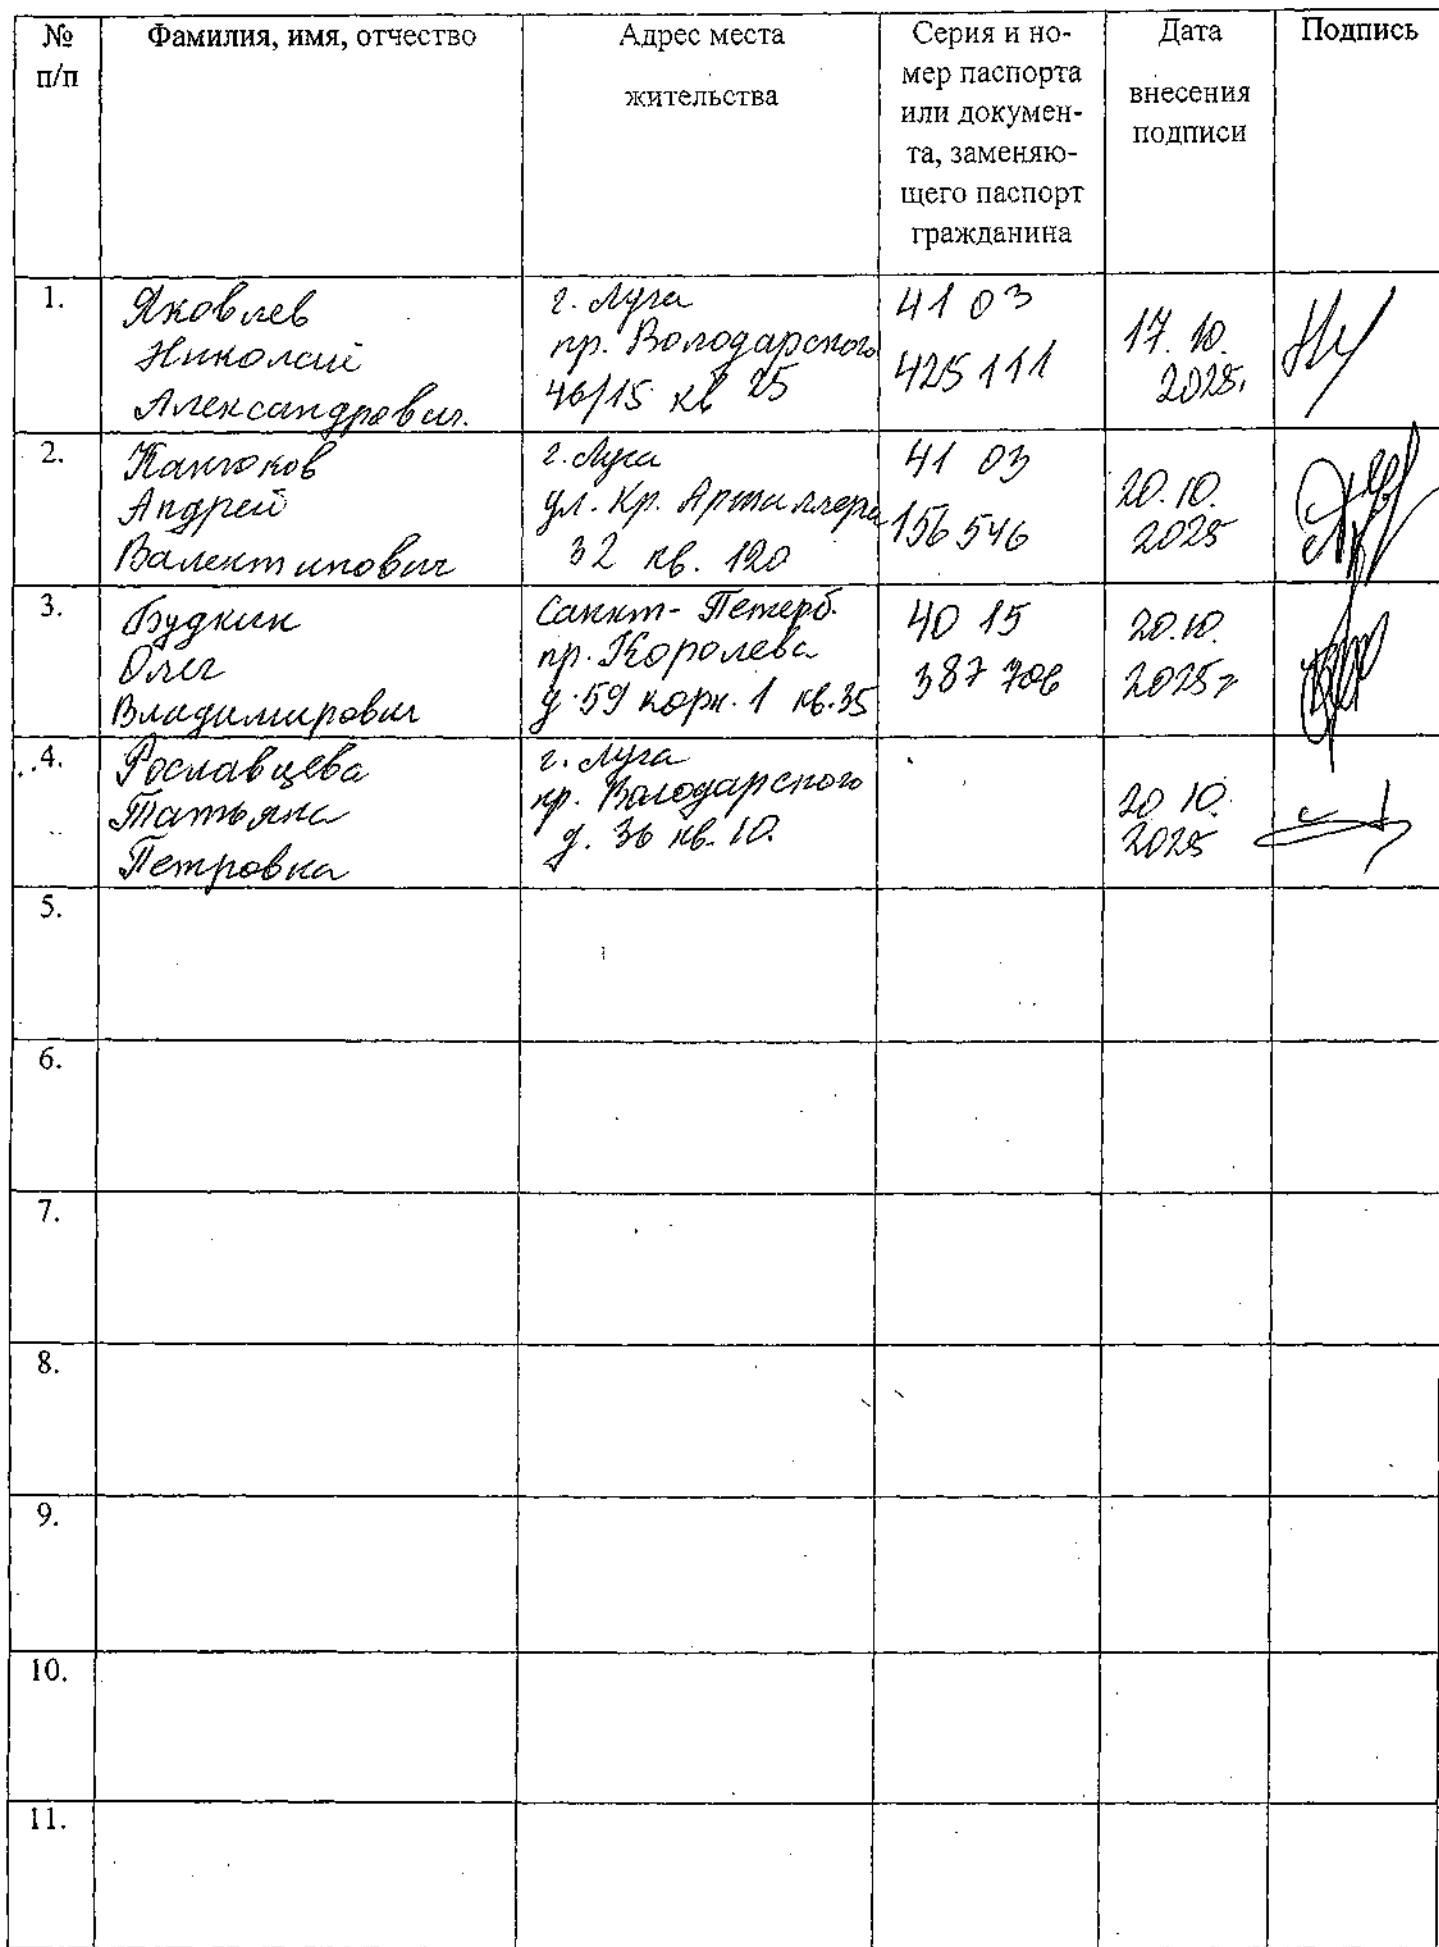 № п/п
Фамилия, имя, отчество
Адрес места
жительства
Серия и но-
мер паспорта
или докумен-
та, заменяю-
щего паспорт
гражданина
Дата
внесения
подписи
Подпись
1.
Яковлев
Николай
Александрович.
г. Луга
пр. Володарского
46/15 кв 25
41 03
425 111
17. 10.
2025.
2.
Андрей
Валентинович
г. Луга
ул. Кр. Артиллера
32 кв. 120
41 03
156 546
20. 10.
2025
3.
Будкин
Олег
Владимирович
Санкт-Петерб.
пр. Королева
д. 59 корп. 1 кв. 35
40 15
387 706
20. 10.
2025г
4.
Рославцева
Татьяна
Петровна
г. Луга
пр. Володарского
д. 36 кв. 10.
20 10.
2025
5.
6.
7.
8.
9.
10.
11.